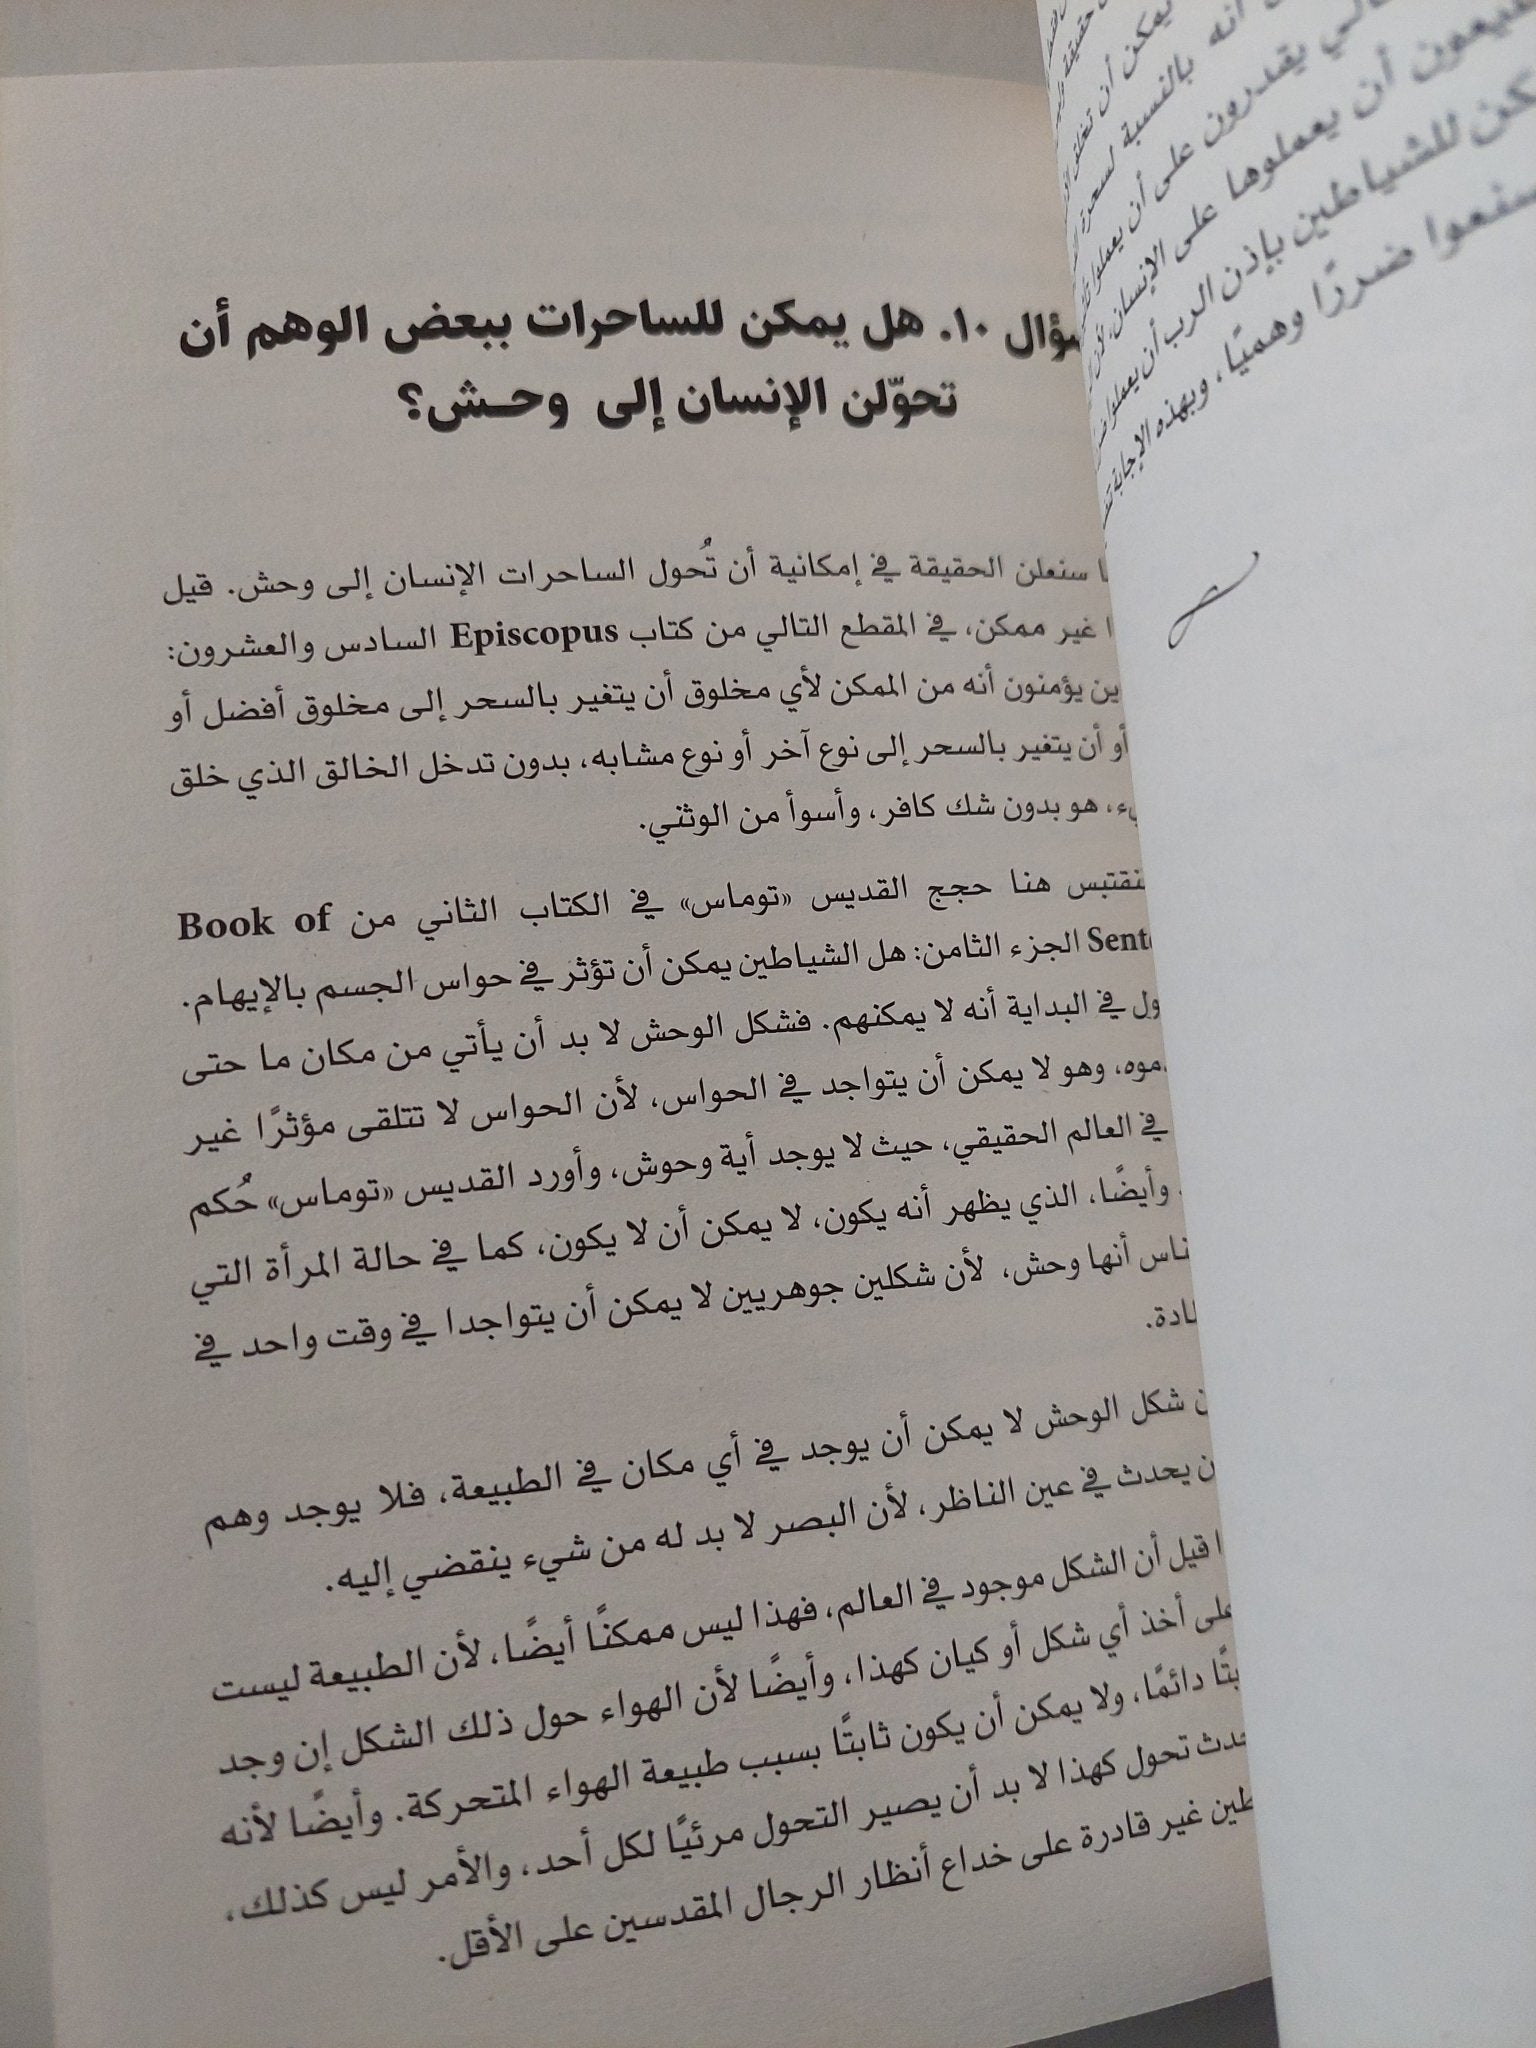 يمكن أن تخلق
أنه بالنسبة لسحرة
يقدرون على أن يعملوا
أن يعملوها على الإنسان، لأن
للشياطين بإذن الرب أن يعملوا
ضررًا وهميًا، وبهذه الإجابة
سؤال ١٠. هل يمكن للساحرات ببعض الوهم أن
تحوّلن الإنسان إلى وحـش؟
سنعلن الحقيقة في إمكانية أن تُحول الساحرات الإنسان إلى وحش. قيل
غير ممكن، في المقطع التالي من كتاب Episcopus السادس والعشرون:
يؤمنون أنه من الممكن لأي مخلوق أن يتغير بالسحر إلى مخلوق أفضل أو
أو أن يتغير بالسحر إلى نوع آخر أو نوع مشابه، بدون تدخل الخالق الذي خلق
هو بدون شك كافر، وأسوأ من الوثني.
نقتبس هنا حجج القديس «توماس» في الكتاب الثاني من Book of
الجزء الثامن: هل الشياطين يمكن أن تؤثر في حواس الجسم بالإيهام.
في البداية أنه لا يمكنهم. فشكل الوحش لا بد أن يأتي من مكان ما حتى
وهو لا يمكن أن يتواجد في الحواس، لأن الحواس لا تتلقى مؤثرًا غير
في العالم الحقيقي، حيث لا يوجد أية وحوش، وأورد القديس «توماس» حُكم
وأيضًا، الذي يظهر أنه يكون، لا يمكن أن لا يكون، كما في حالة المرأة التي
أنها وحش، لأن شكلين جوهريين لا يمكن أن يتواجدا في وقت واحد في
شكل الوحش لا يمكن أن يوجد في أي مكان في الطبيعة، فلا يوجد وهم
يحدث في عين الناظر، لأن البصر لا بد له من شيء ينقضي إليه.
قيل أن الشكل موجود في العالم، فهذا ليس ممكنًا أيضًا، لأن الطبيعة ليست
على أخذ أي شكل أو كيان كهذا، وأيضًا لأن الهواء حول ذلك الشكل إن وجد
دائمًا، ولا يمكن أن يكون ثابتًا بسبب طبيعة الهواء المتحركة. وأيضًا لأنه
تحول كهذا لا بد أن يصير التحول مرئيًا لكل أحد، والأمر ليس كذلك،
غير قادرة على خداع أنظار الرجال المقدسين على الأقل.